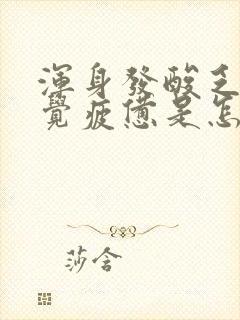 渾身發酸乏
覺疲憊是怎
莎含